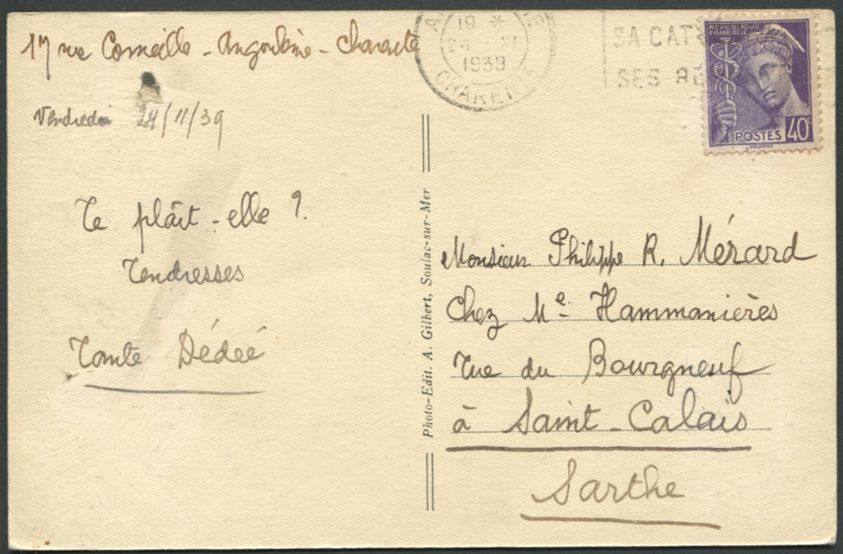 17 rue Corneille - Angoulême - Charente
Vendredi 24/11/39
Te plaît-elle ?
Tendresses
Tante Dédée
A E
19 *
24 XI
1939
CHARENTE
SA CAT
SES RE
RÉPUBLIQUE
FRANÇAISE
POSTES 40c
Photo-Edit. A. Gilbert, Soulac-sur-Mer
Monsieur Philippe R. Mérard
Chez Me Hammanières
Rue du Bourgneuf
à Saint-Calais
Sarthe